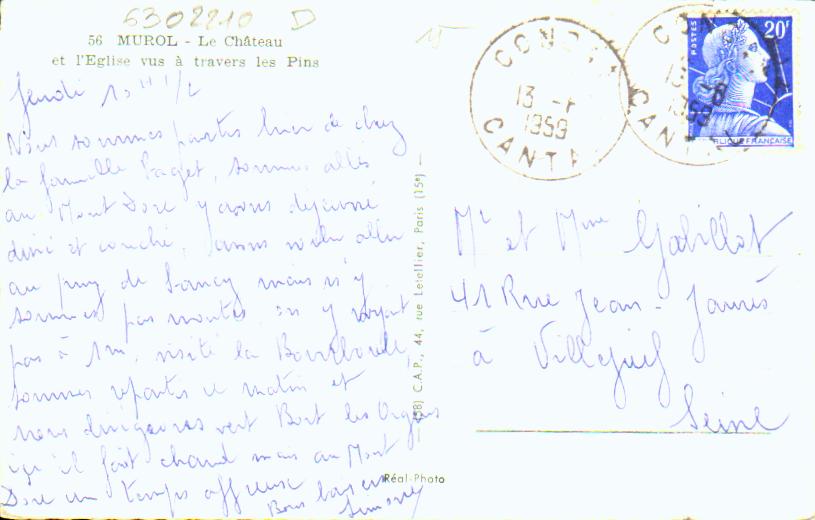 6302210 D
56 MUROL - Le Château
et l'Eglise vus à travers les Pins
Jeudi 13 H 1/2
Nous sommes partis hier de chez
la famille Paget, sommes allés
au Mont Dore y avons déjeuné
diné et couché, avons voulu aller
au puy de Sancy mais n'y
sommes pas montés, on y voyait
pas à 1m, visité la Bourboule,
sommes repartis ce matin et
nous dirigeons vert Bort les Orgues
ici il fait chaud mais au Mont
Dore un temps affreux
Bons baisers
Simone
(68) C.A.P., 44, rue Letellier, Paris (15e)
Réal-Photo
CONDAT
13 -
1959
CANTAL
CANTAL
POSTES
20F
RÉPUBLIQUE FRANÇAISE
Mr et Mme Gabillot
41 Rue Jean-Jaurès
à Villejuif
Seine